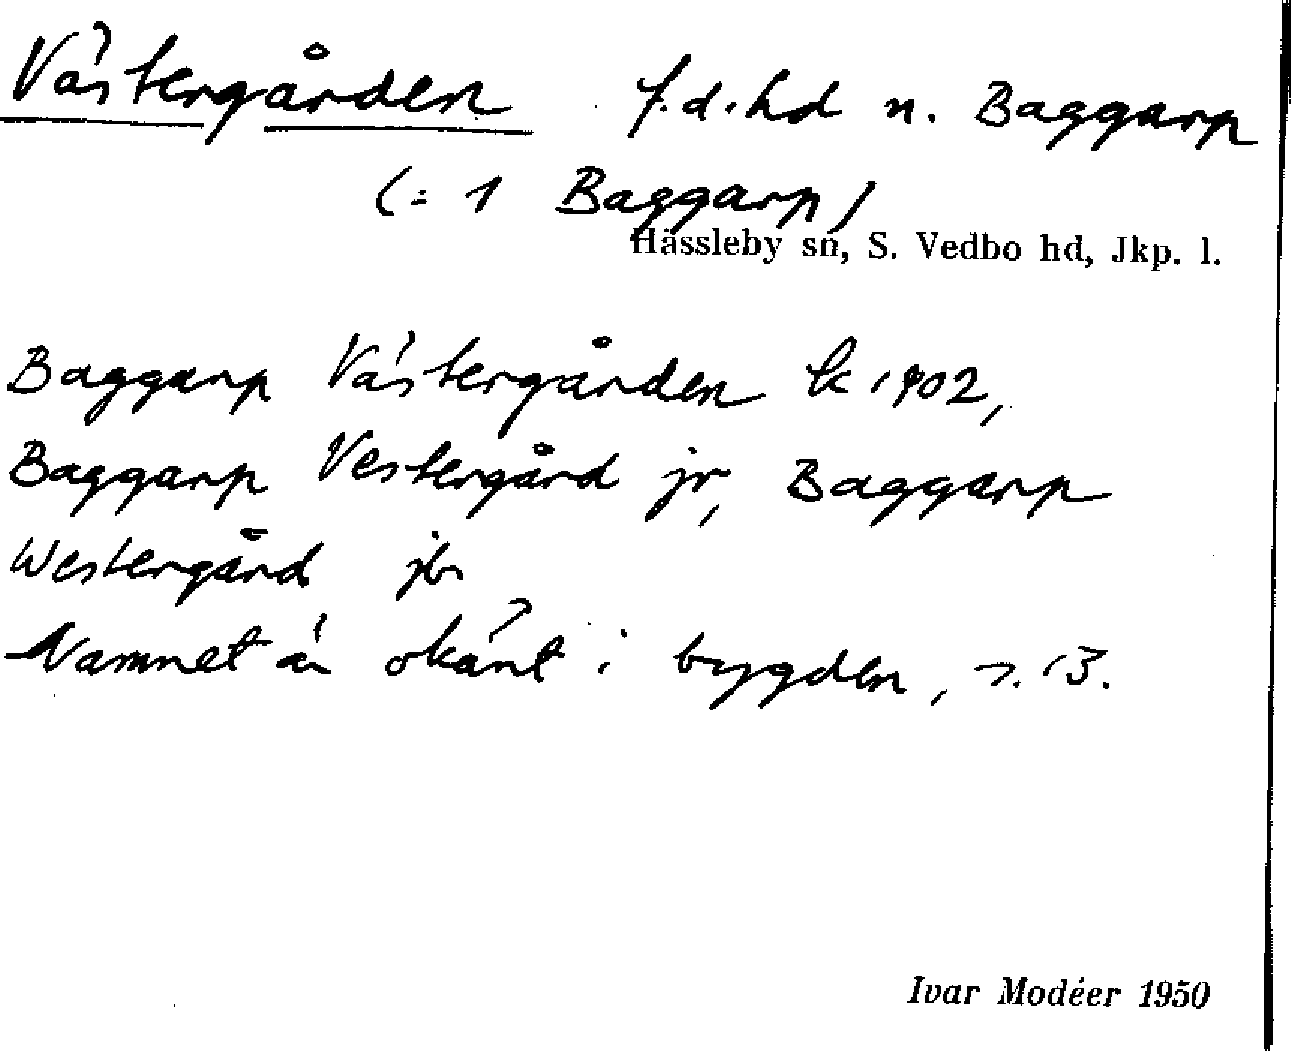 Västergården f.d. hd n. Baggarp
(= 1 Baggarp)
Hässleby sn, S. Vedbo hd, Jkp. l.
Baggarp Västergården k 1902,
Baggarp Vestergård jr, Baggarp
Westergård jb
Namnet är okänt i bygden, s. 13.
Ivar Modéer 1950